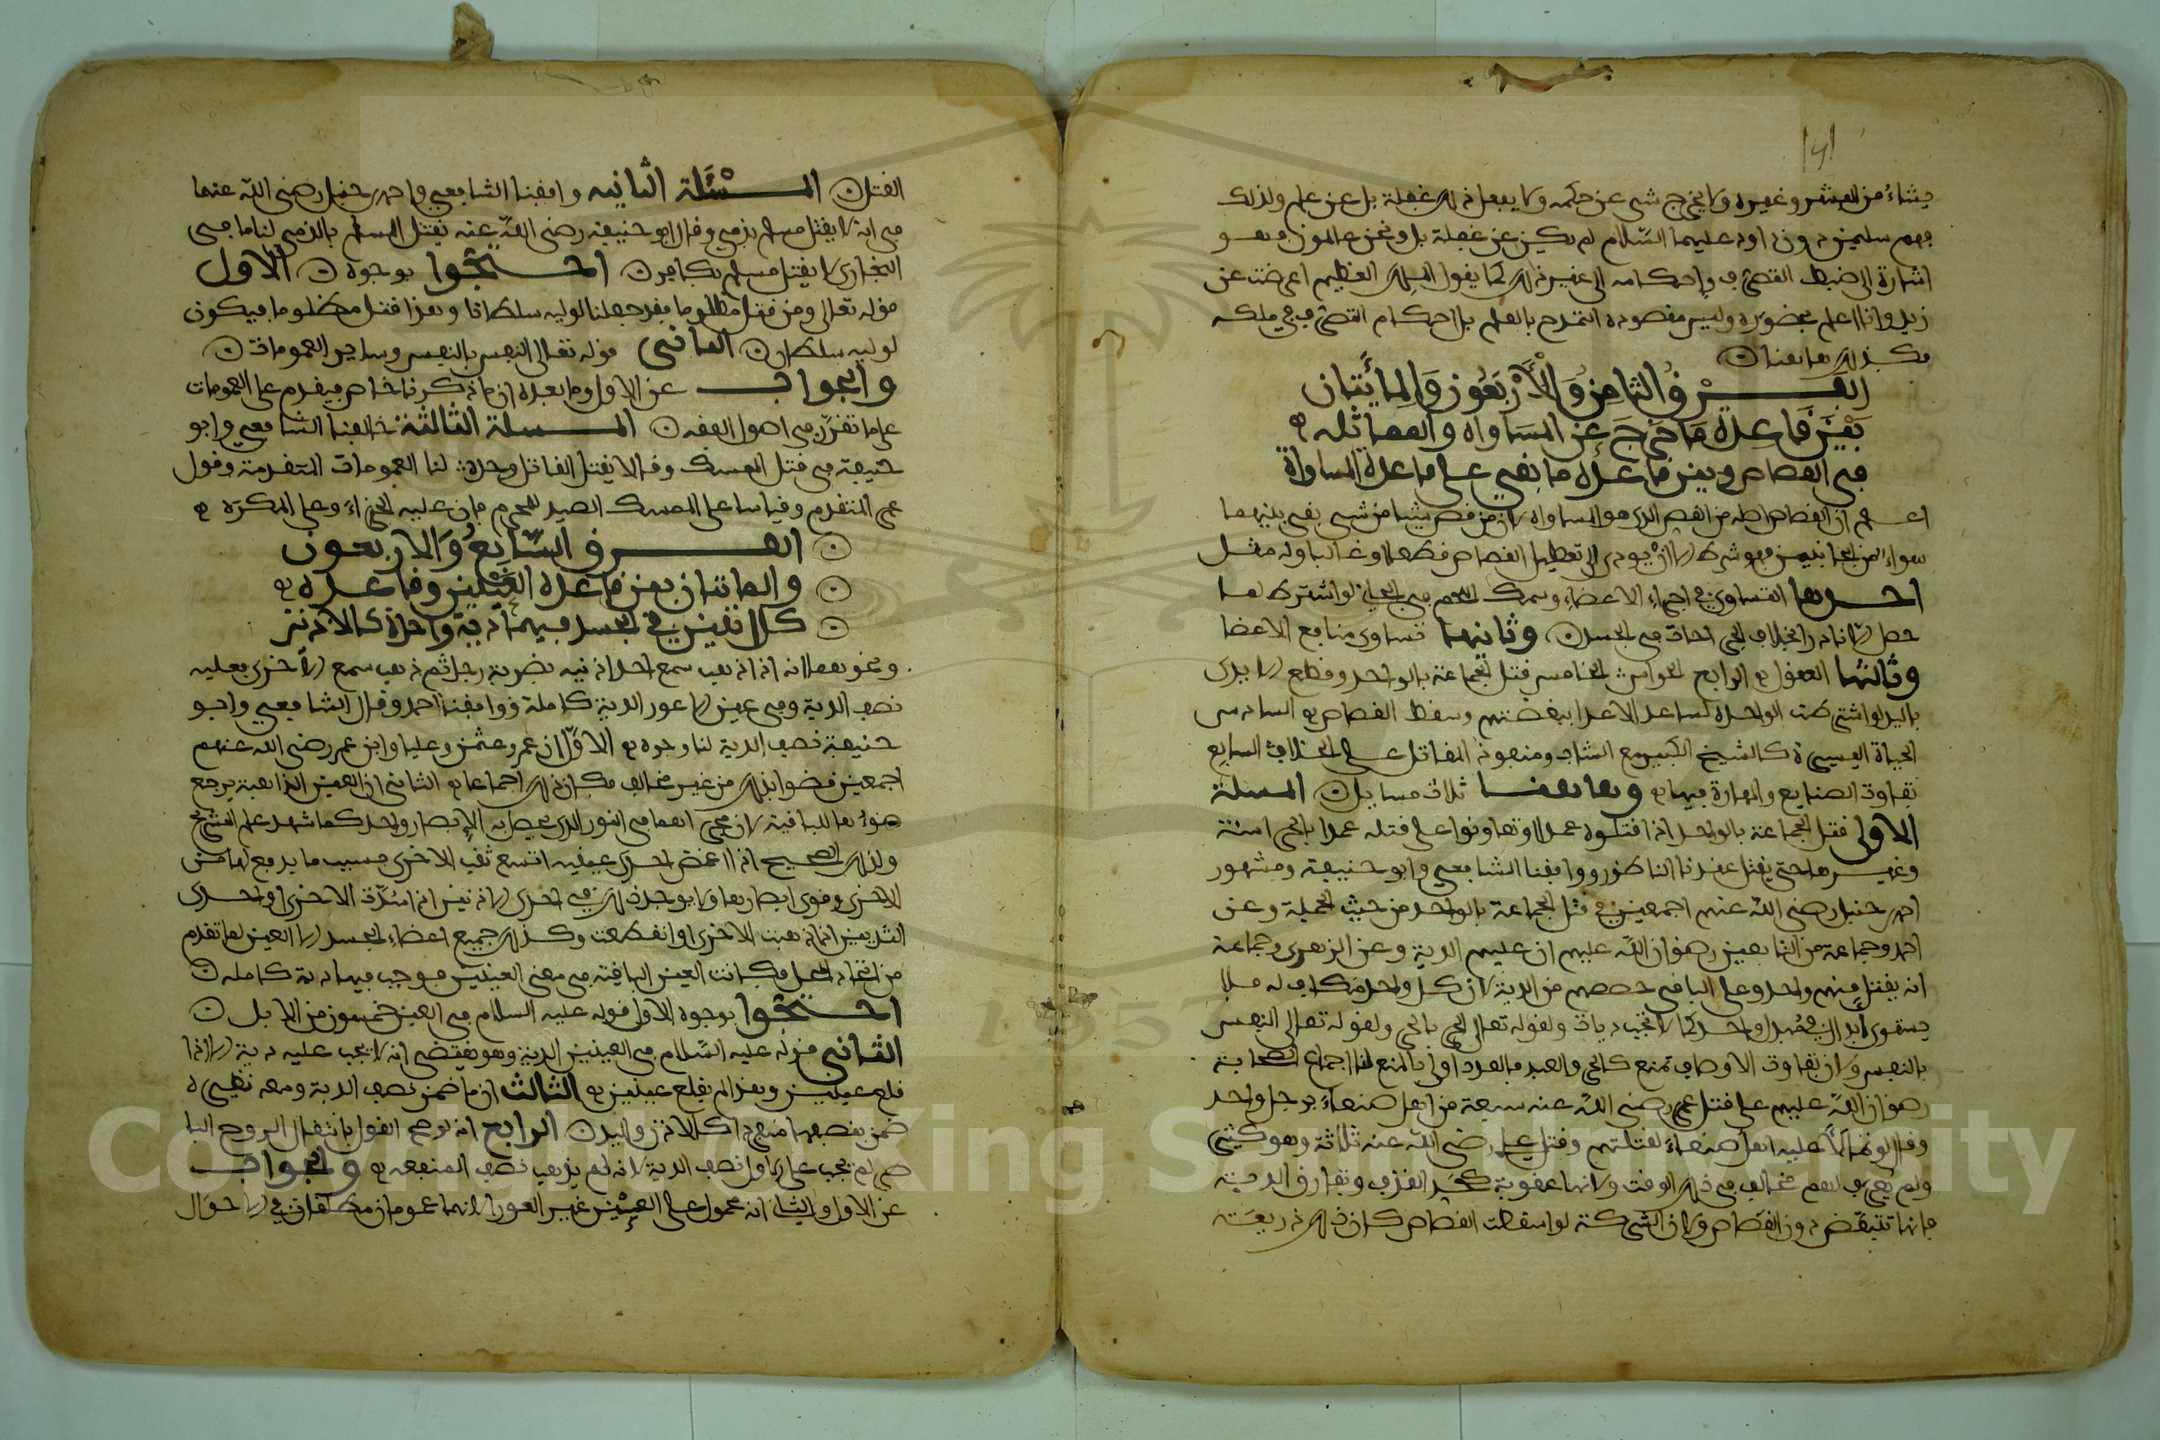 يشاء من البشر وغيره ولا يخرج شي عن حكمه ولا يفعل ذلك غفلة بل عن علم ولذلك
فهم سليمن دون داود عليهما السلام لم يكن عن غفلة بل ونحن عالمون فهو
اشارة الى ضبط التصرف واحكامه الى غير ذلك كما يقول الملك العظيم اعرضت عن
زيد وانا اعلم بحضوره وليس مقصوده التمدح بالعلم بل احكام التصرف في ملكه
فكذلك هاهنا
الفرق الثامن والأربعون والمائتان
بين قاعدة ما خرج عن المساواة والمماثلة
في القصاص وبين قاعدة ما بقي على قاعدة المساواة
اعلم ان القصاص اصله من القص الذي هو المساواة لان من قص شيئا من شي بقي بينهما
سواء من الجانبين فهو شرط الا ان يودي الى تعطيل القصاص قطعا او غالبا وله مثل
احدها التساوي في اجزاء الاعضاء وسمك اللحم في الجاني لو اشترط لما
حصل الا نادرا بخلاف الجراحات في الجسد وثانيها تساوي منافع الاعضا
وثالثها العقول الرابع الحواس الخامس قتل الجماعة بالواحد وقطع الايدي
باليد لو اشترطت الواحدة لساعد الاعدا ببعضهم وسقط القصاص السادس
الحياة اليسيرة كالشيخ الكبير مع الشاب ومنفوذ المقاتل على الخلاف السابع
تفاوت الصنايع والمهارة فيها وهاهنا ثلاث مسايل المسلة
الاولى قتل الجماعة بالواحد اذا قتلوه عمدا او تعاونوا على قتله عمدا بالحرابة
وغيرها حتى يقتل عندنا الناظور ووافقنا الشافعي وابو حنيفة ومشهور
احمد بن حنبل رضي الله عنهم اجمعين في قتل الجماعة بالواحد من حيث الجملة وعن
احمد وجماعة من التابعين رضوان الله عليهم ان عليهم الدية وعن الزهري وجماعة
انه يقتل منهم واحد وعلى الباقي حصصهم من الدية لان كل واحد مكاف له فلا
يستوفى ابدال في مبدل واحد كما لا تجب ديات ولقوله تعالى الحر بالحر ولقوله تعالى النفس
بالنفس ولان تفاوت الاوصاف تمنع كالحر والعبد فالعدد اولى بالمنع لنا اجماع الصحابة
رضوان الله عليهم على قتل عمر رضي الله عنه سبعة من اهل صنعاء برجل واحد
وقال لو تمالا عليه اهل صنعاء لقتلتهم وقتل علي رضي الله عنه ثلاثة وهو كثير
ولم يعرف لهم مخالف في ذلك الوقت ولانها عقوبة كحد القذف وتفارق الدية
فانها تتبعض دون القصاص ولان الشركة لو اسقطت القصاص كان ذلك ذريعة
القتل المسئلة الثانيه وافقنا الشافعي واحمد بن حنبل رضي الله عنهما
في انه لا يقتل مسلم بذمي وقال ابو حنيفة رضي الله عنه يقتل المسلم بالذمي لنا ما في
البخاري لا يقتل مسلم بكافر احتجوا بوجوه الاول
قوله تعالى ومن قتل مظلوما فقد جعلنا لوليه سلطانا وهذا قتل مظلوما فيكون
لوليه سلطان الثاني قوله تعالى النفس بالنفس وساير العمومات
والجواب عن الاول وما بعده ان ما ذكرنا خاص فيقدم على العمومات
على ما تقرر في اصول الفقه المسلة الثالثة خالفنا الشافعي وابو
حنيفة في قتل الممسك وقالا يقتل القاتل وحده لنا العمومات المتقدمة وقول
عمر المتقدم وقياسا على الممسك الصيد للمحرم فان عليه الجزاء وعلى المكره
الفرق التاسع والاربعون
والمائتان بين قاعدة العينين وقاعدة
كل اثنين في الجسد فيهما دية واحدة كالاذنين
ونحوهما انه اذا ذهب سمع احد اذنيه بضربة رجل ثم ذهب سمع الاخرى فعليه
نصف الدية وفي عين الاعور الدية كاملة ووافقنا احمد وقال الشافعي وابو
حنيفة نصف الدية لنا وجوه الاول ان عمر وعثمن وعليا وابن عمر رضي الله عنهم
اجمعين قضوا بذلك من غير مخالف فكان ذلك اجماعا الثاني ان العين الذاهبة يرجع
ضوءها للباقية لان مجراهما في النور الذي يحصل به الابصار واحد كما شهد علم التشريح
ولذلك الصحيح اذا اغمض احدى عينيه اتسع ثقب الاخرى بسبب ما يدفع لها من
الاخرى وقوي ابصارها ولا يوجد ذلك في احدى الاذنين اذا سدت الاخرى او احدى
اليدين اذا ذهبت الاخرى او انقطعت وكذلك جميع اعضاء الجسد الا العين لما تقدم
من اتحاد المحل فكانت العين الباقية في معنى العينين فوجب فيها دية كامله
احتجوا بوجوه الاول قوله عليه السلام في العين خمسون من الابل
الثاني قوله عليه السلام في العينين الدية وهو يقتضي انه لا يجب عليه دية الا اذا
قلع عينين وهذا لم يقلع عينين الثالث ان ما ضمن نصف الدية ومعه نظيره
ضمن بنصفها منفردا كالاذن واليد الرابع انه لو صح القول بانتقال الروح البا
صر لم يجب على الاول نصف الدية لانه لم يذهب نصف المنفعه والجواب
عن الاول والثاني انه محمول على العينين غير العور لانهما عمومان مطلقان في الاحوال
Copyright © King Saud University
1957